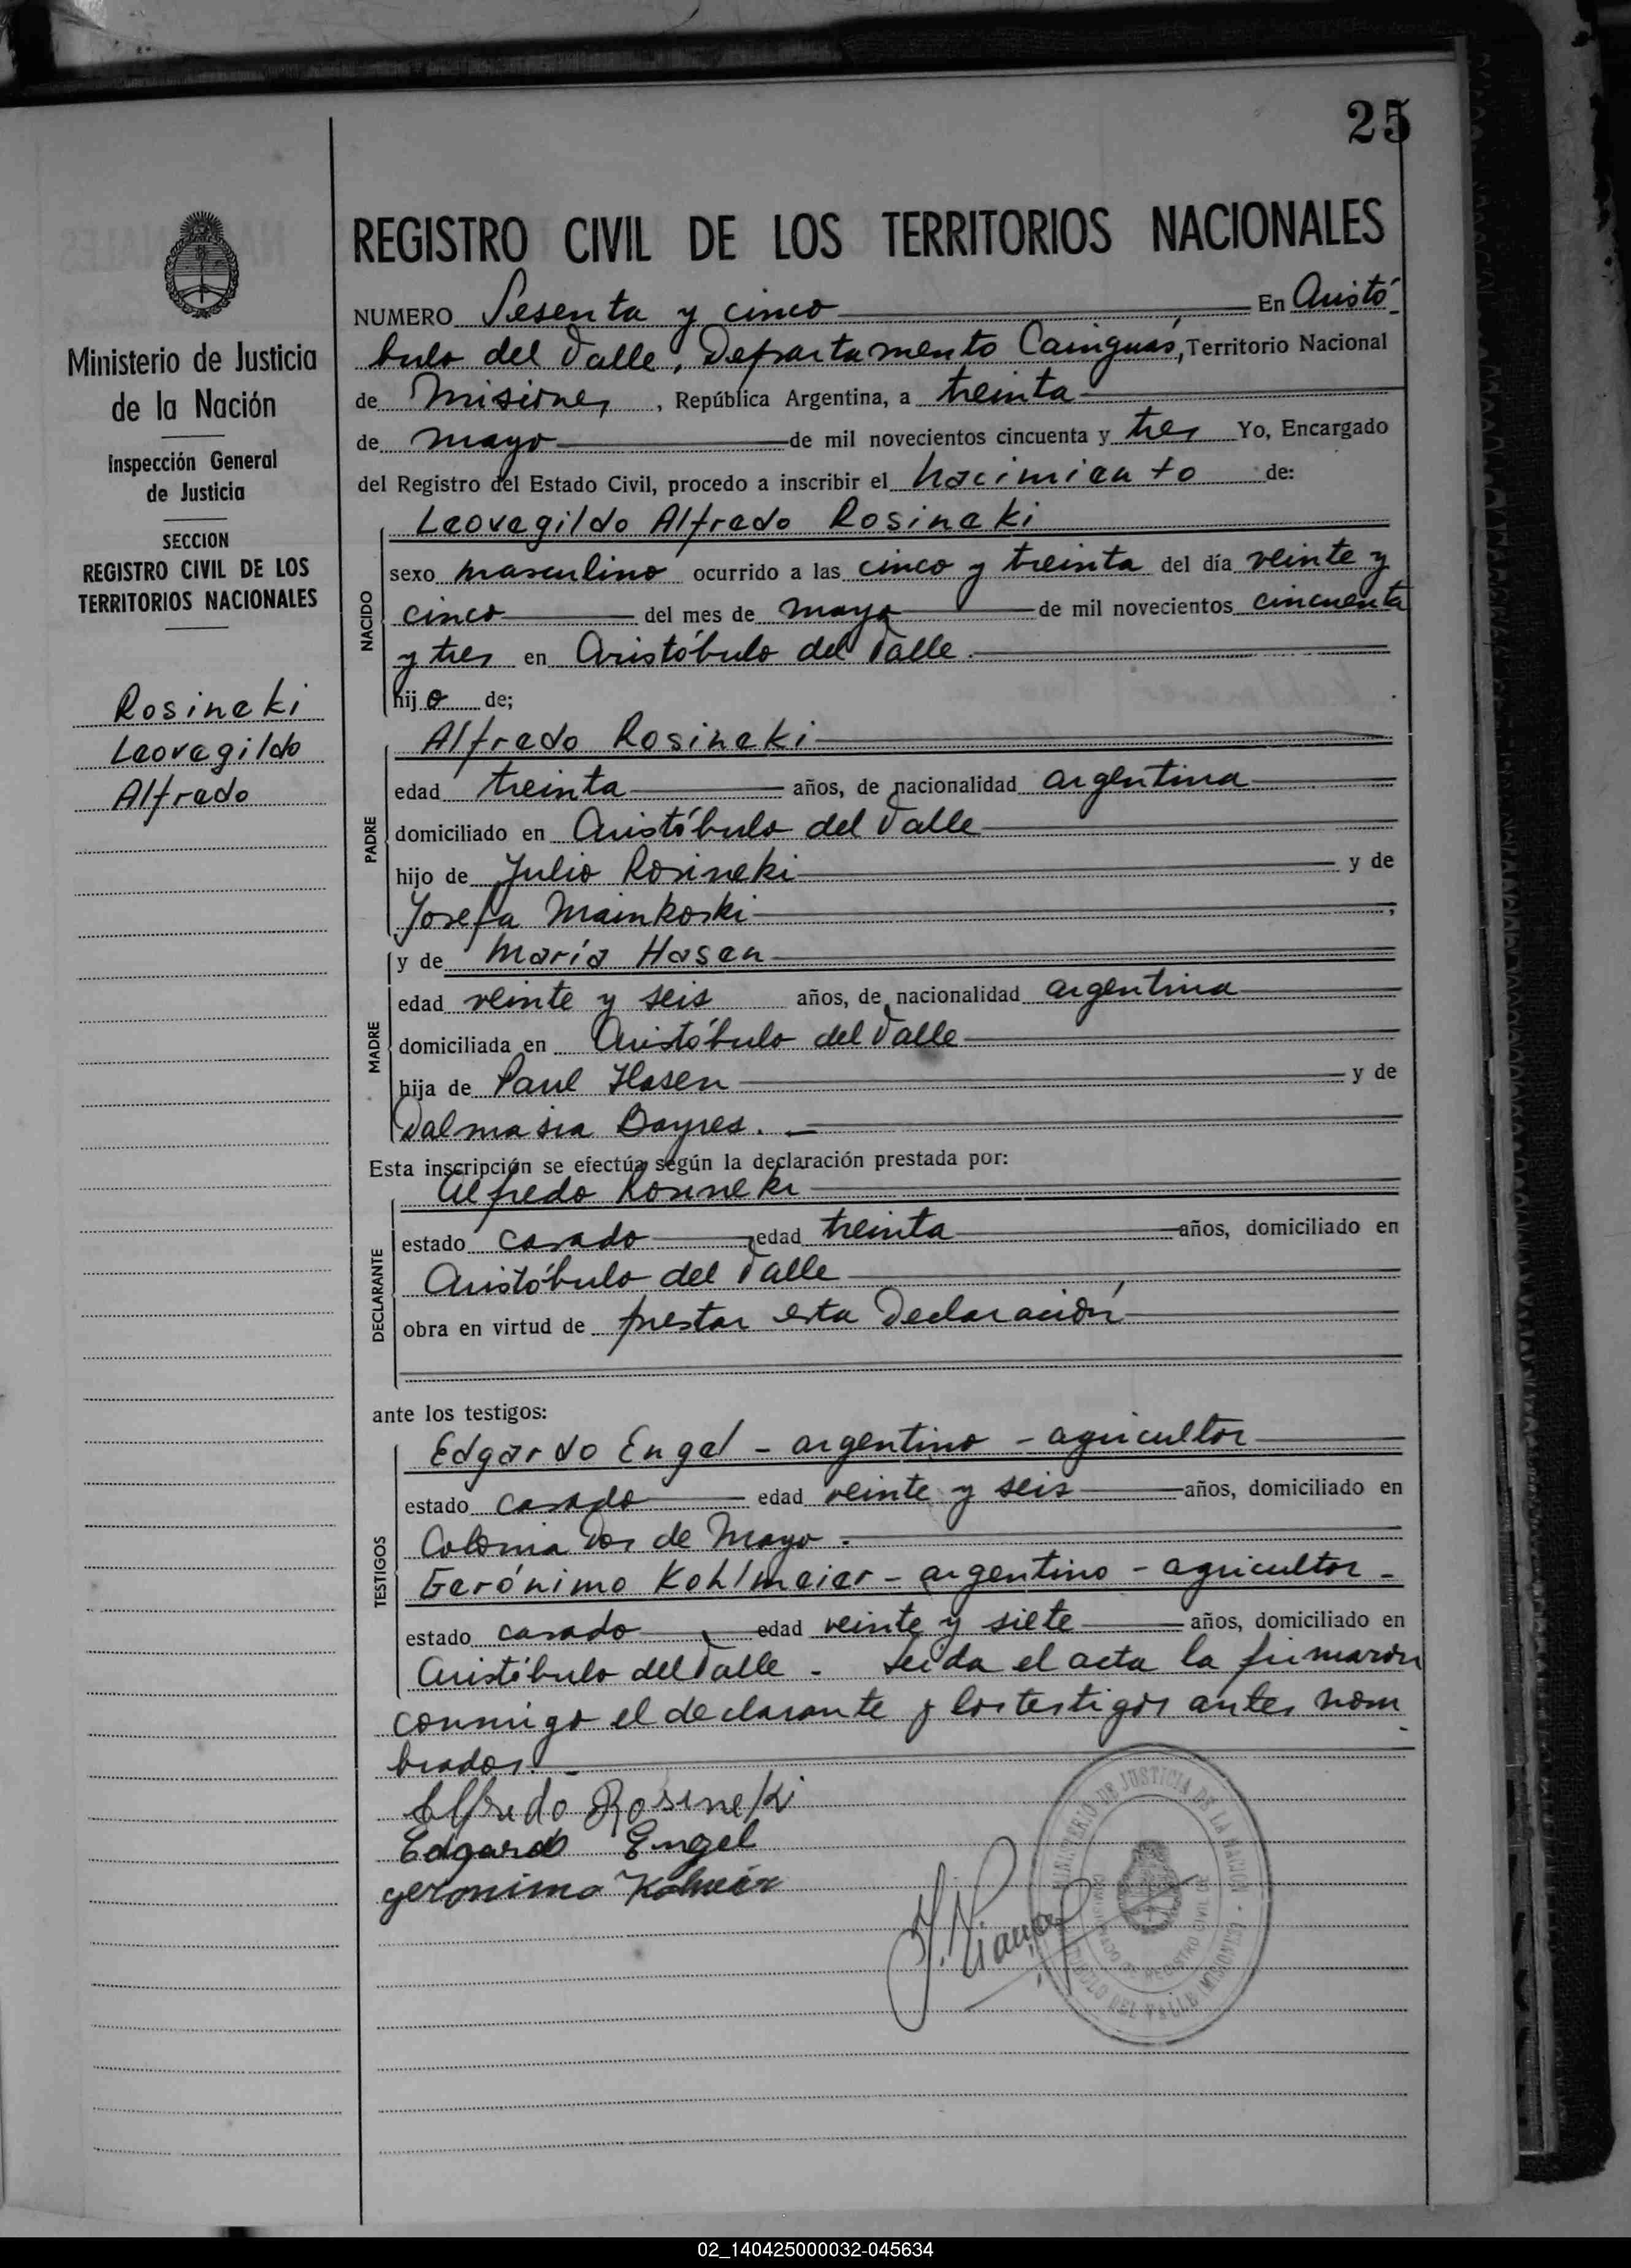 25
REGISTRO CIVIL DE LOS TERRITORIOS NACIONALES
Ministerio de Justicia
de la Nación
Inspección General
de Justicia
SECCION
REGISTRO CIVIL DE LOS
TERRITORIOS NACIONALES
Rosineki
Leovegildo
Alfredo
NUMERO Sesenta y cinco En Aristó
bulo del Valle, Departamento Cainguás, Territorio Nacional
de Misiones, República Argentina, a treinta
de mayo de mil novecientos cincuenta y tres Yo, Encargado
del Registro del Estado Civil, procedo a inscribir el nacimiento de:
NACIDO
Leovegildo Alfredo Rosineki
sexo masculino ocurrido a las cinco y treinta del día veinte y
cinco del mes de mayo de mil novecientos cincuenta
y tres en Aristóbulo del Valle.
hijo de;
PADRE
Alfredo Rosineki
edad treinta años, de nacionalidad argentina
domiciliado en Aristóbulo del Valle
hijo de Julio Rosineki y de
Josefa Mainkoski ;
MADRE
y de María Hasen
edad veinte y seis años, de nacionalidad argentina
domiciliada en Aristóbulo del Valle
hija de Paul Hasen y de
Dalmasia Bayres.
Esta inscripción se efectúa según la declaración prestada por:
DECLARANTE
Alfredo Rosineki
estado casado edad treinta años, domiciliado en
Aristóbulo del Valle
obra en virtud de prestar esta declaración
ante los testigos:
TESTIGOS
Edgardo Engel - argentino - agricultor
estado casado edad veinte y seis años, domiciliado en
Colonia Dos de Mayo.
Gerónimo Kohlmeier - argentino - agricultor -
estado casado edad veinte y siete años, domiciliado en
Aristóbulo del Valle - Leída el acta la firmaron
conmigo el declarante y los testigos antes nom
brados.
Alfredo Rosineki
Edgardo Engel
geronimo
MINISTERIO DE JUSTICIA DE LA NACION
DEL VALLE (MISIONES)
REGISTRO CIVIL DE
02_140425000032-045634